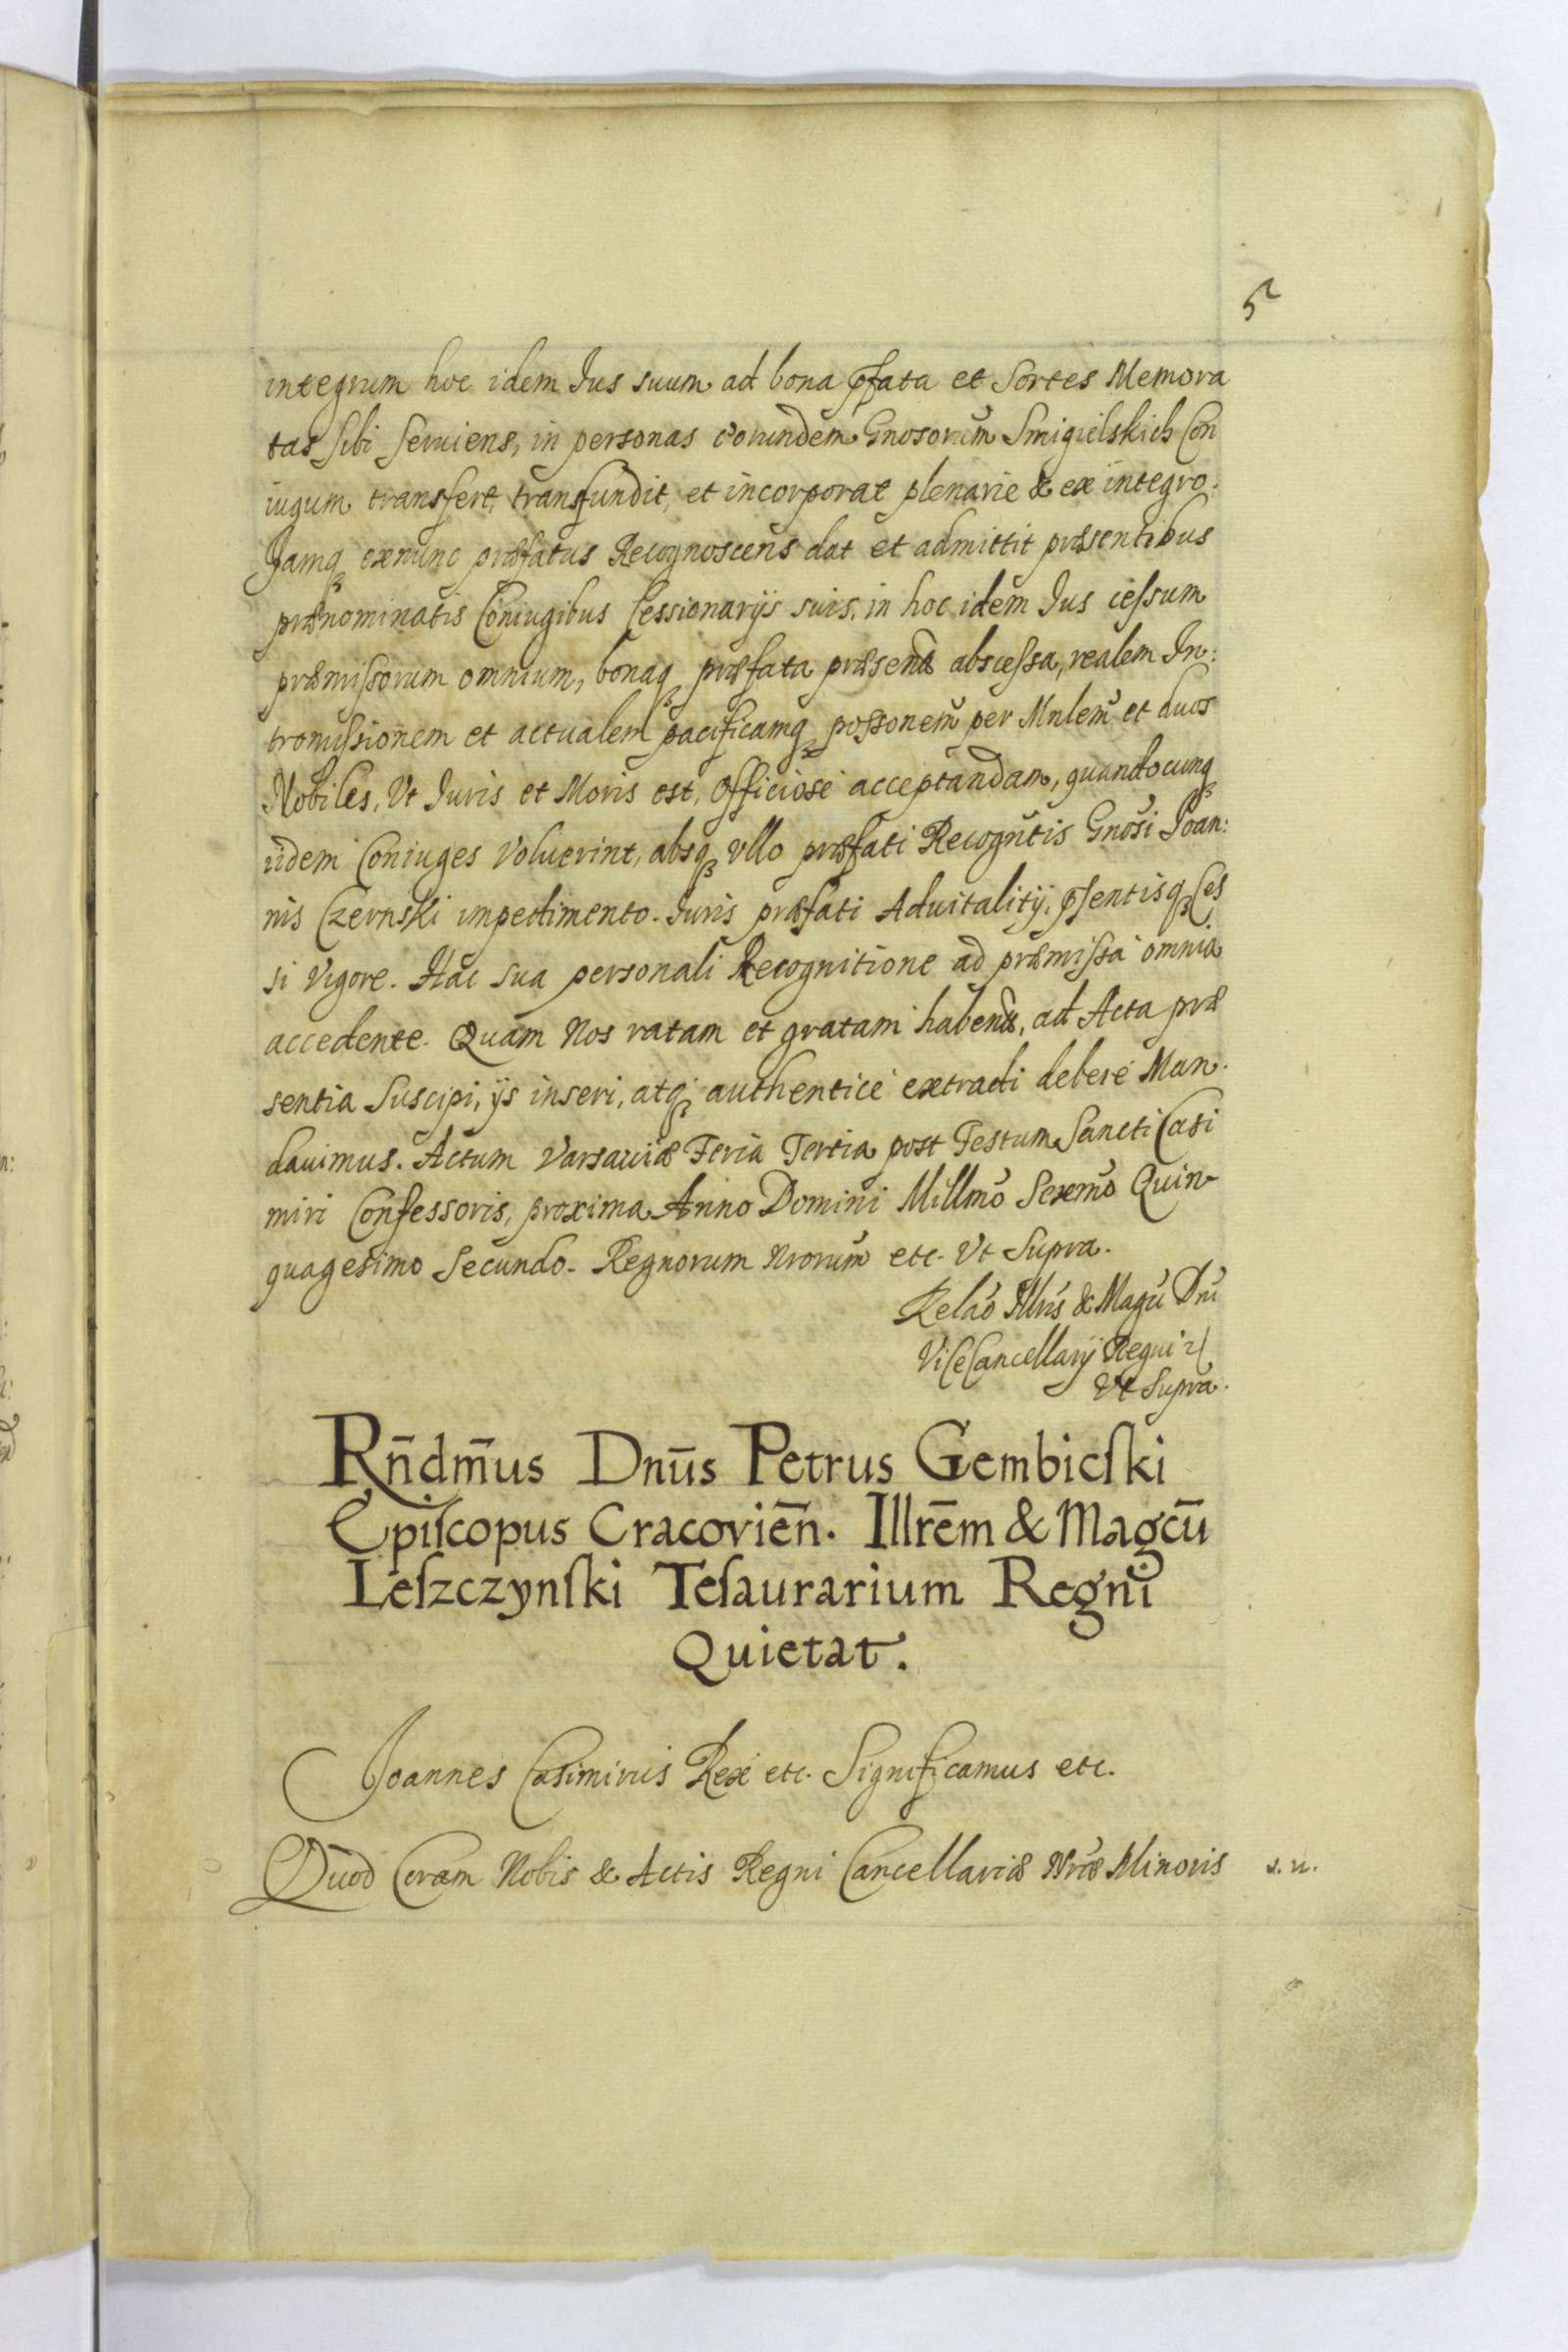 5
integrum hoc idem Jus suum ad bona pfata et Sortes Memora
tas sibi Seruiens, in personas eorundem Gnosorum Smigielskich Con
iugum transfert, transfundit, et incorporat plenarie & ex integro.
Jamq exnunc præfatus Recognoscens dat et admittit præsentibus
prænominatis Coniugibus Cessionarijs suis, in hoc idem Jus cessum
præmissorum omnium, bonaq præfata præsend abscessa, realem In:
tromissionem et actualem pacificamq possonem per Mnlem et duos
Nobiles, Ut Juris et Moris est, Officiose acceptandam, quandocunq
iidem Coniuges Voluerint, absq ullo præfati Recogntis Gnosi Joan:
nis Czernski impedimento. Juris præfati Aduitalitij, psentisq Ces
si Vigore. Hac sua personali Recognitione ad præmissa omnia
accedente. Quam Nos ratam et gratam habend, ad Acta præ
sentia Suscipi, ijs inseri, atq authentice extradi debere Man.
dauimus. Actum Varsauiæ Feria Tertia post Festum Sancti Casi
miri Confessoris, proxima Anno Domini Millmo Sexmo Quin
quagesimo Secundo. Regnorum Nrorum etc. Ut Supra.
Relao Illris & Magci Dni
ViceCancellarij Regni
Ut Supra.
Rn̄dm̄us Dnūs Petrus Gembicſki
Epiſcopus Cracovien̄. Illrēm & Magcū
Leſzczynſki Teſaurarium Regni
Quietat.
Joannes Casimirus Rex etc. Significamus etc.
Quod Coram Nobis & Actis Regni Cancellariæ Nræ Minoris